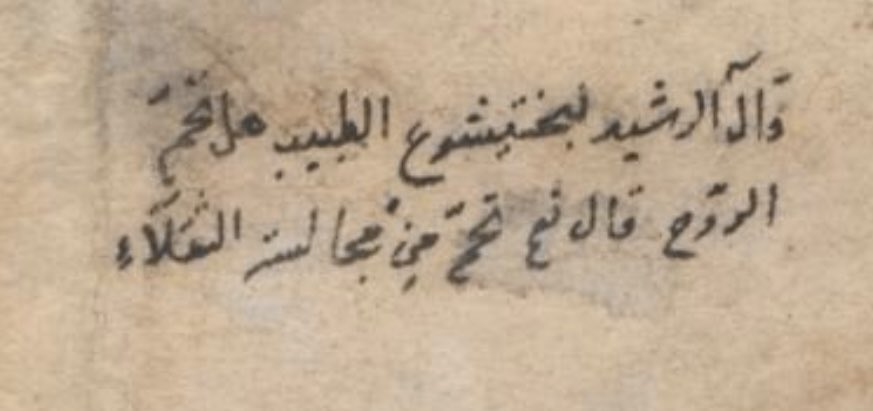 قال الرشيد لبختيشوع الطبيب هل تحمّ
الروح قال نعم تحمّ من مجالسة الثقلاء